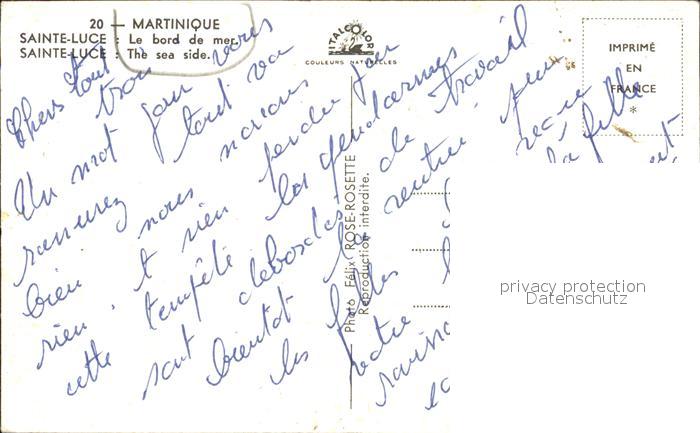 20 — MARTINIQUE
SAINTE-LUCE : Le bord de mer.
SAINTE-LUCE : The sea side.
VITALCOLOR
COULEURS NATURELLES
IMPRIMÉ
EN
FRANCE
*
Photo Félix ROSE-ROSETTE
Reproduction interdite.
Chers tout trois
Un mot pour vous
rassurez tout va
bien, nous n'avons
rien et rien perdu par
cette tempête les gendarmes
sont débordés de travail
bientôt la rentrée pour
les filles reçu
votre la fille
privacy protection
Datenschutz